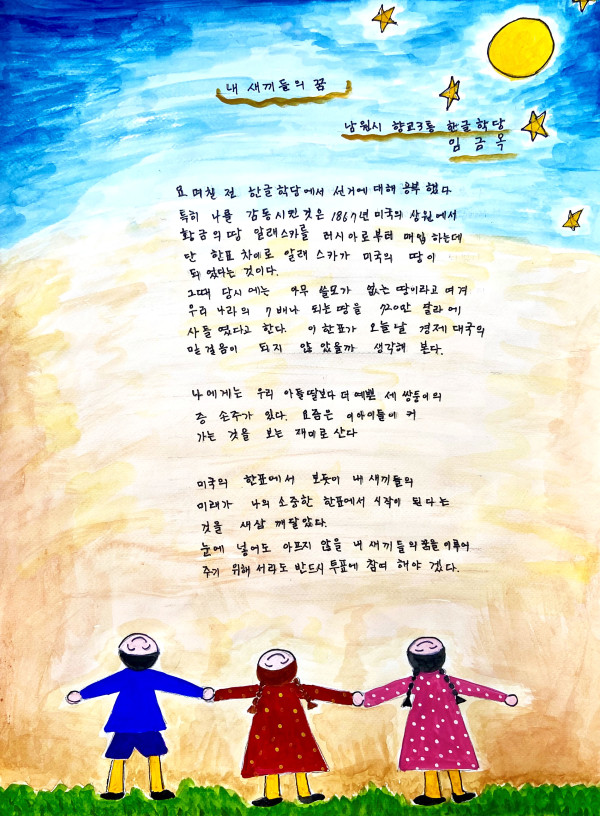 내 새끼들의 꿈
남원시 향교3통 한글학당
임금옥
요 며칠 전 한글학당에서 선거에대해 공부 했다
특히 나를 감동시킨것은 1867년 미국의 상원에서
황금의땅 알래스카를 러시아로부터 매입 하는데
단 한표 차이로 알래스카가 미국의 땅이
되었다는 것이다.
그때 당시에는 아무 쓸모가 없는 땅이라고 여겨
우리 나라의 7배나 되는땅을 720만 달라에
사들였다고 한다. 이한표가 오늘날 경제대국의
밑걸음이 되지 않았을까 생각해 본다.
나에게는 우리 아들딸보다 더 예쁜 세 쌍둥이의
증 손주가 있다. 요즘은 이아이들이 커
가는 것을 보는 재미로 산다
미국의 한표에서 보듯이 내 새끼들의
미래가 나의 소중한 한표에서 시작이 된다는
것을 새삼 깨달았다.
눈에 넣어도 아프지 않을 내 새끼들의 꿈을 이루어
주기 위해서라도 반드시 투표에 참여 해야 겠다.